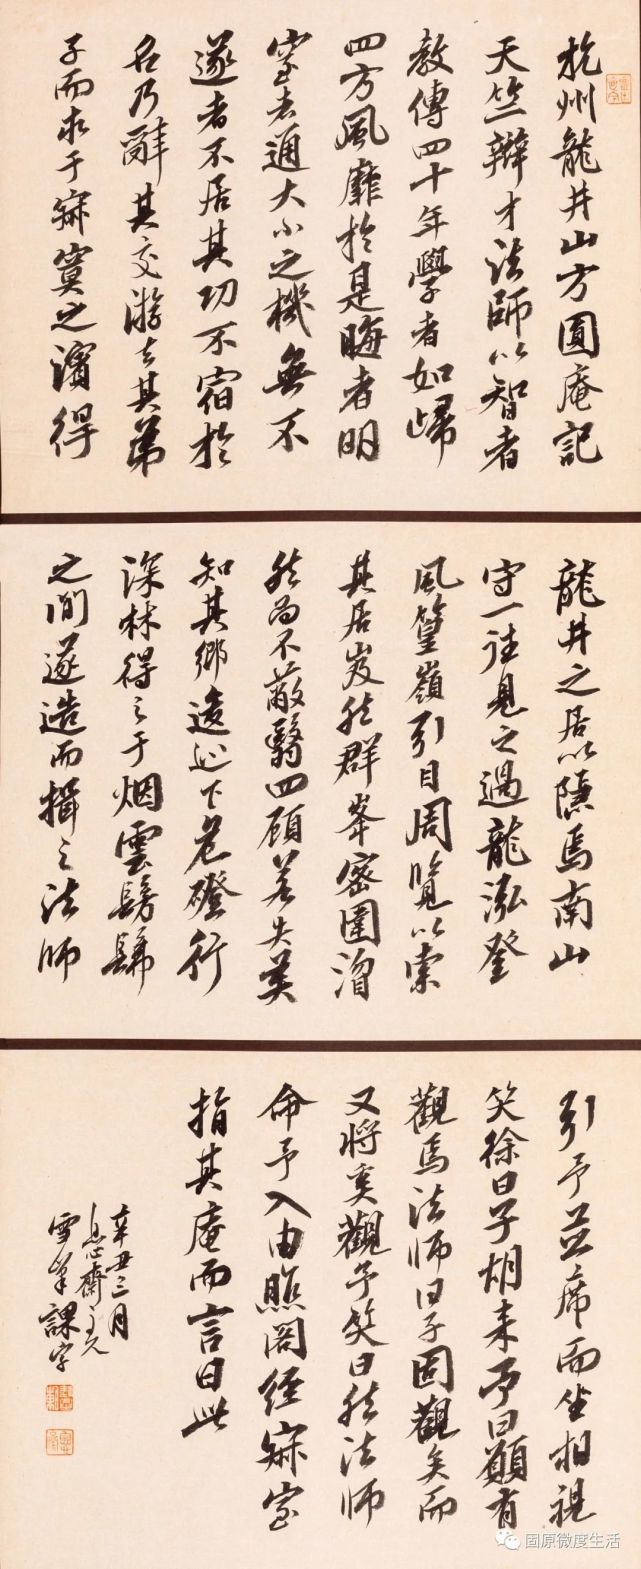 杭州龍井山方圓庵記
天竺辯才法師以智者
教傳四十年學者如歸
四方風靡於是晦者明
窒者通大小之機無不
遂者不居其功不宿於
名乃辭其交游去其弟
子而求于寂寞之濱得
龍井之居以隱焉南山
守一往見之過龍泓登
風篁嶺引目周覽以索
其居岌然群峰密圍溜
然而不蔽翳四顧若失莫
知其鄉逡巡下危磴行
深林得之于烟雲髣髴
之間遂造而揖之法師
引予並席而坐相視
笑徐曰子胡来予曰願有
觀焉法師曰子固觀矣而
又將奚觀予笑曰然法師
命予入由照閣經寂室
指其庵而言曰此
辛丑三月
雪峯課字
固原微度生活